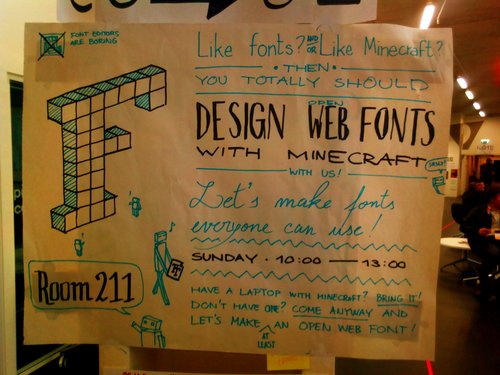 FONT EDITORS
ARE BORING
Like fonts? AND OR Like Minecraft?
· THEN ·
YOU TOTALLY SHOULD
DESIGN OPEN WEB FONTS
WITH MINECRAFT
WITH US!
Let's make fonts
everyone can use!
SUNDAY · 10:00 — 13:00
Room 211
HAVE A LAPTOP WITH MINECRAFT? BRING IT!
DON'T HAVE ONE? COME ANYWAY AND
LET'S MAKE AT LEAST AN OPEN WEB FONT!